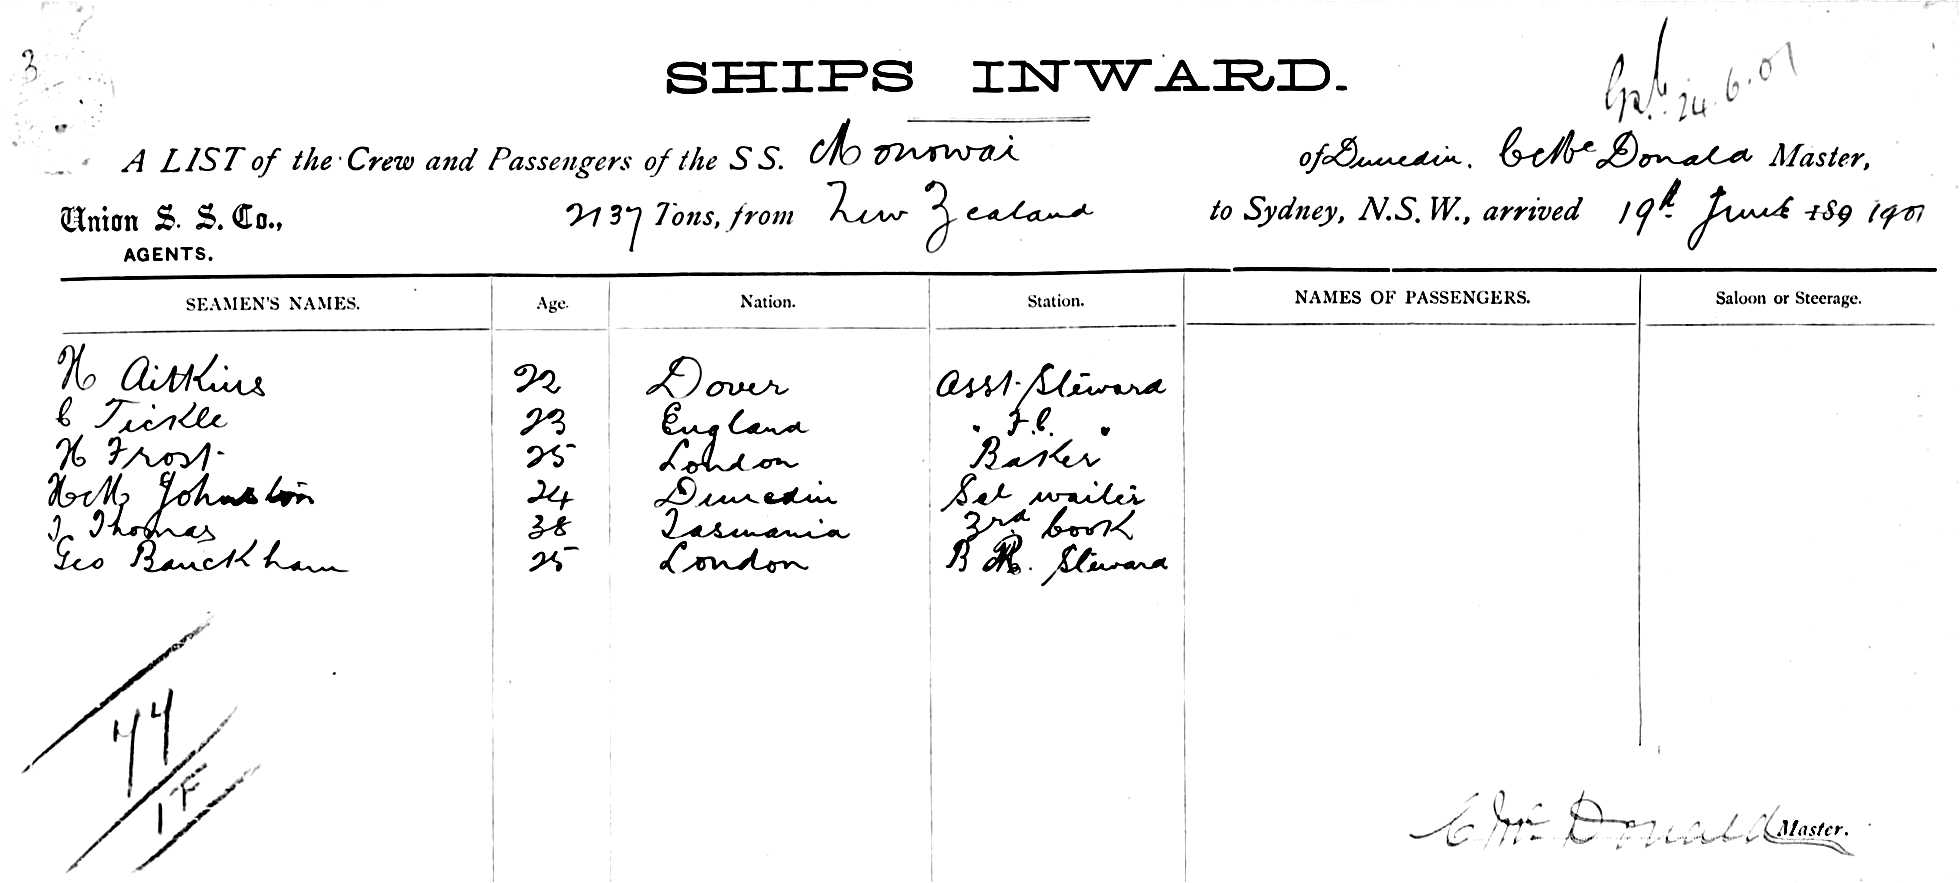 3
SHIPS INWARD.
24.6.01
A LIST of the Crew and Passengers of the S S. Monowai of Dunedin. C McDonald Master,
Union S. S. Co., 2137 Tons, from New Zealand to Sydney, N.S.W., arrived 19th June 189 1901
AGENTS.
SEAMEN'S NAMES. Age. Nation. Station. NAMES OF PASSENGERS. Saloon or Steerage.
H Aitkins 22 Dover Asst. Steward
C Tickle 23 England " F.C. "
H Frost 25 London Baker
H McM Johnston 24 Dunedin Sal waiter
T Thomas 38 Tasmania 3rd Cook
Geo Banckham 25 London B R. Steward
44
1F
C McDonald Master.